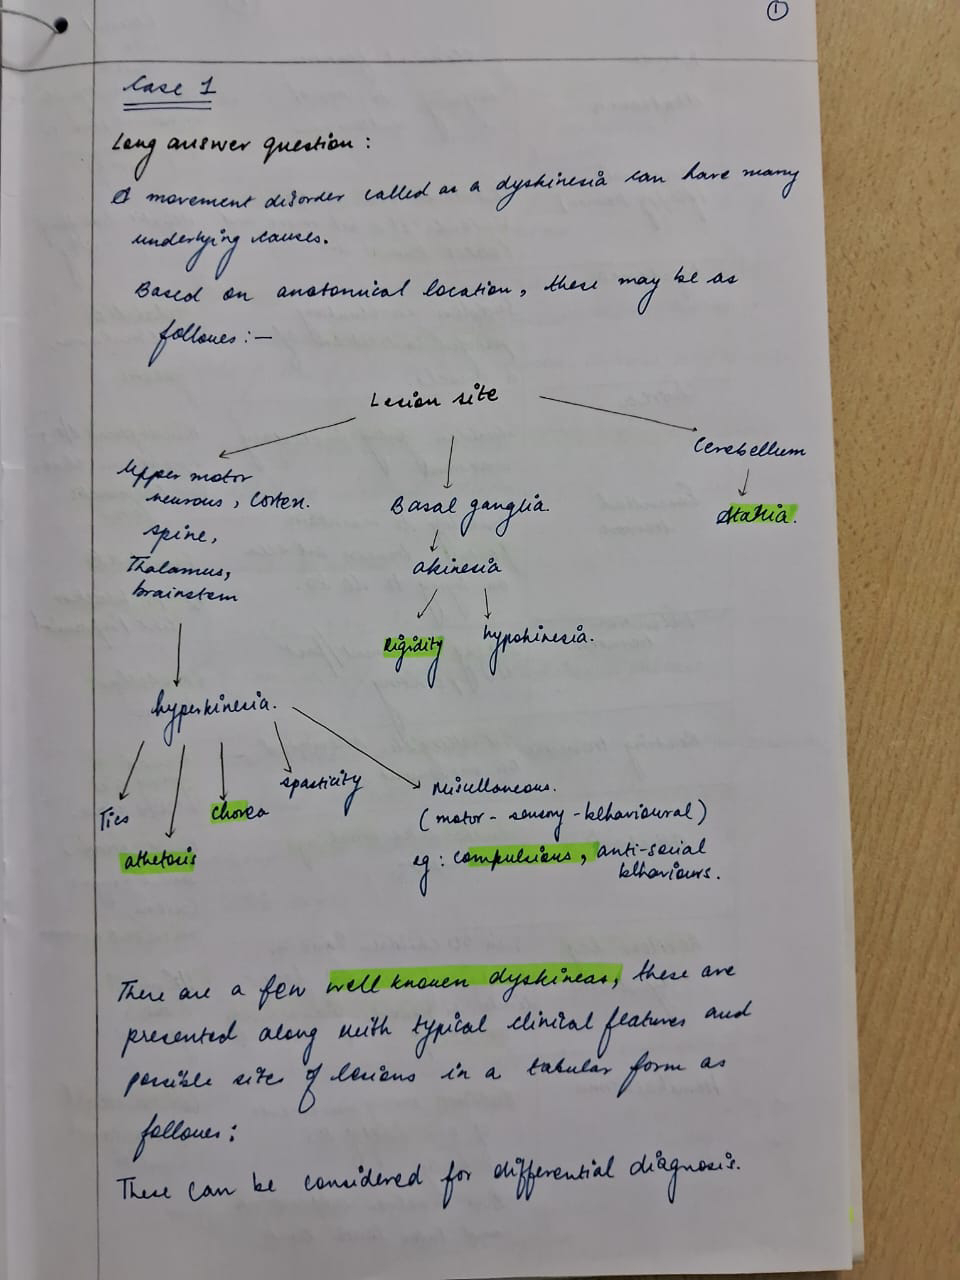 1
Case 1
Long answer question :
A movement disorder called as a dyskinesia can have many
underlying causes.
Based on anatomical location, these may be as
follows :-
Lesion site
Upper motor
neurons, cortex.
spine,
Thalamus,
brainstem
Basal ganglia.
akinesia
Rigidity
hypokinesia.
Cerebellum
Ataxia.
hyperkinesia.
Tics
athetosis
chorea
spasticity
Miscellaneous.
(motor - sensory - behavioural)
eg : compulsions, anti-social
behaviours.
There are a few well known dyskineas, these are
presented along with typical clinical features and
possible site of lesions in a tabular form as
follows :
These can be considered for differential diagnosis.